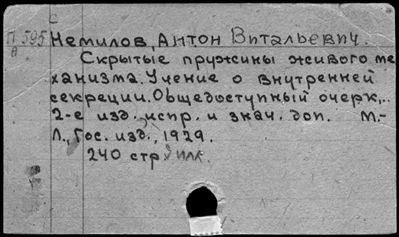 П 595 Немилов, Антон Витальевич.
А Скрытые пружины живого ме
ханизма. Учение о внутренней
секреции. Общедоступный очерк,..
2-е изд. испр. и знач. доп. М.-
Л., Гос. изд., 1929.
240 стр илл.